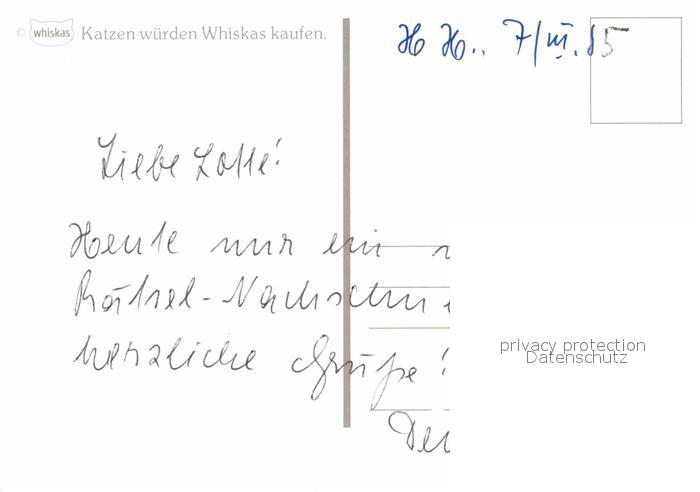 © whiskas Katzen würden Whiskas kaufen.
HH.. 7/III. 85
Liebe Lotte!
Heute nur ein
Rätsel-Nachschu
herzliche Grüße!
privacy protection
Datenschutz